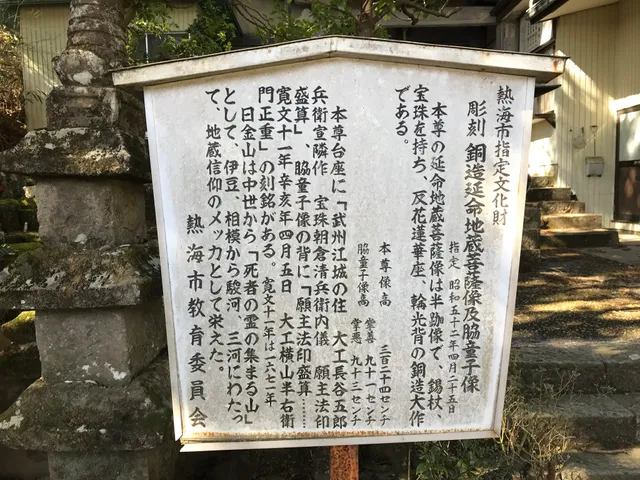 熱海市指定文化財
彫刻 銅造延命地蔵菩薩像及脇童子像
指定 昭和五十二年四月二十五日
本尊の延命地蔵菩薩像は半跏像で、錫杖、
宝珠を持ち、反花蓮華座、輪光背の銅造大作
である。
本尊像高 三百二十四センチ
脇童子像高 掌善 九十一センチ
掌悪 九十三センチ
本尊台座に「武州江城の住 大工長谷五郎
兵衛宣隣作 宝珠朝倉清兵衛内儀 願主法印
盛算」、脇童子像の背に「願主法印盛算……
寛文十一年辛亥年四月五日 大工横山半右衛
門正重」の刻銘がある。寛文十一年は一六七一年
日金山は中世から「死者の霊の集まる山」
として、伊豆、相模から駿河、三河にわたっ
て、地蔵信仰のメッカとして栄えた。
熱海市教育委員会